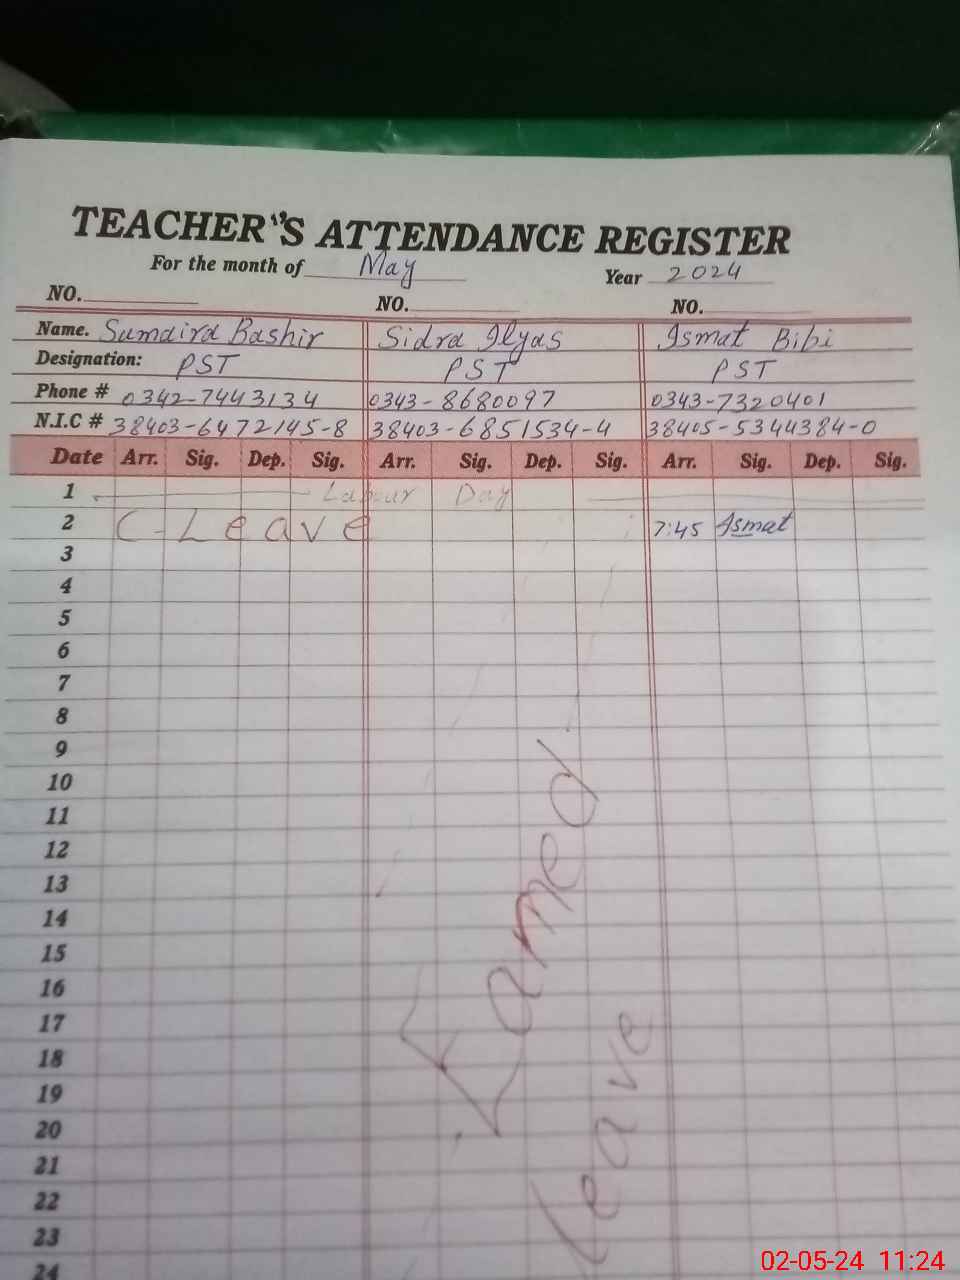 TEACHER'S ATTENDANCE REGISTER
For the month of May Year 2024
NO. NO. NO.
Name. Sumaira Bashir Sidra Ilyas Ismat Bibi
Designation: PST PST PST
Phone # 0342-7443134 0343-8680097 0343-7320401
N.I.C # 38403-6472145-8 38403-6851534-4 38405-5344384-0
Date Arr. Sig. Dep. Sig. Arr. Sig. Dep. Sig. Arr. Sig. Dep. Sig.
1 Labour Day
2 C-Leave 7:45 Ismat
3
4
5
6
7
8
9
10
11
12
13
14
15
16
17
18
19
20
21
22
23
24
Earned
leave
02-05-24 11:24